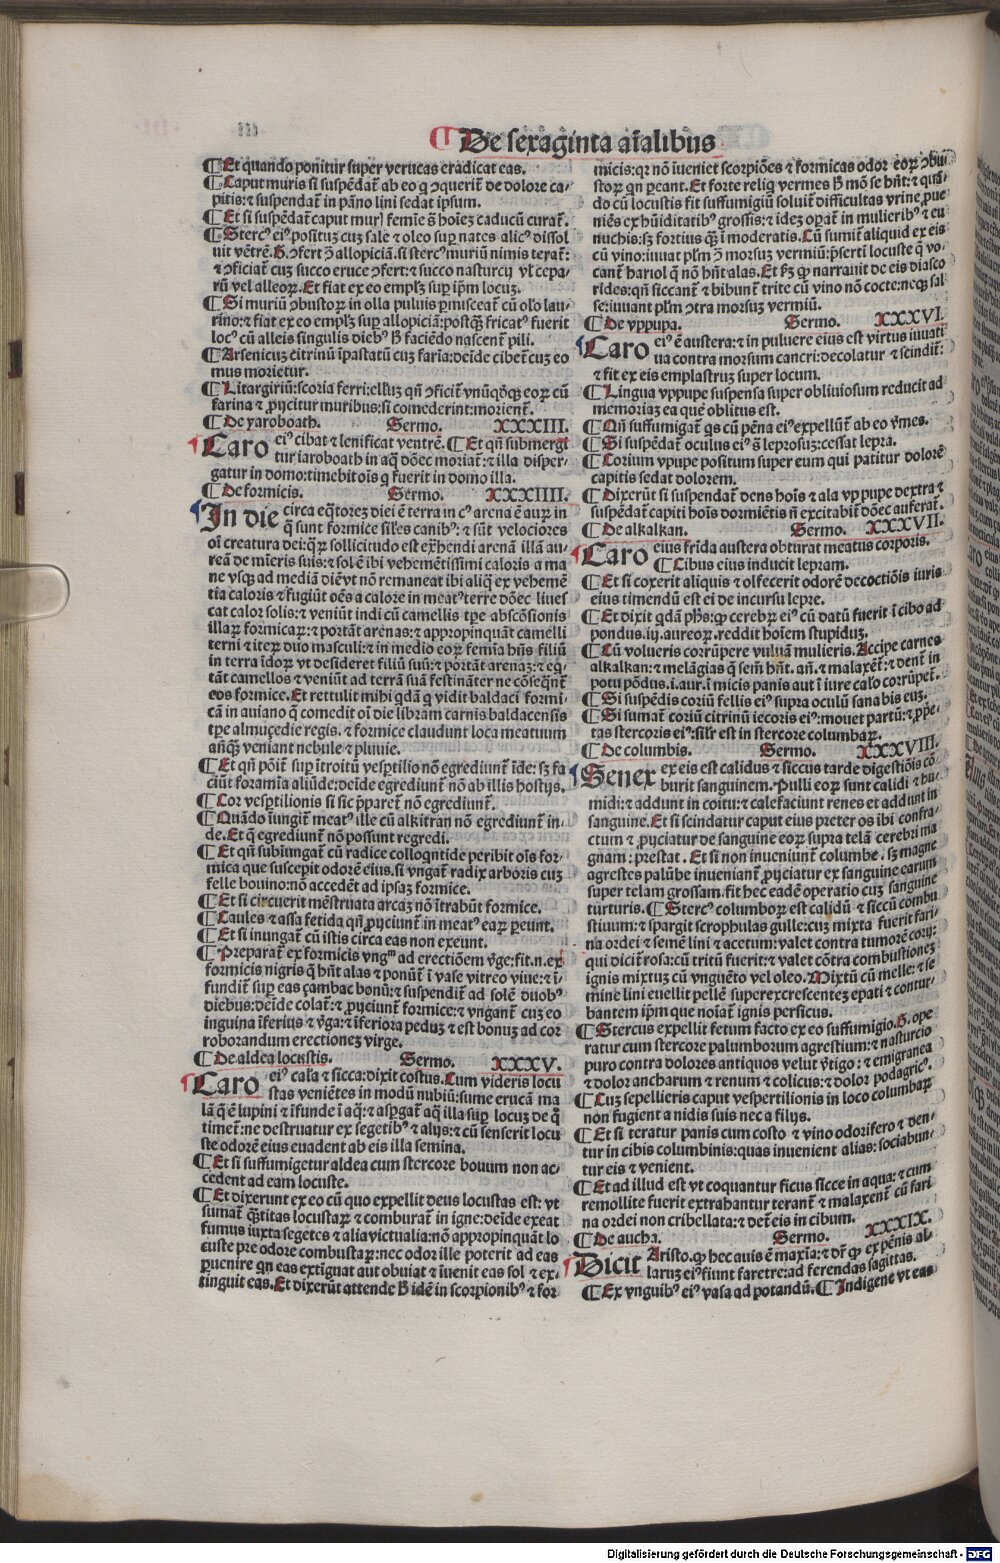 ¶De sexaginta aīalibus
¶Et quando ponitur super verucas eradicat eas.
¶Caput muris si suspēdat̄ ab eo q ɔquerit̄ de dolore ca-
pitis: ⁊ suspendat̄ in pāno lini sedat ipsum.
¶Et si suspēdat̄ caput muri femīe s̄ hoīez caducū curat̄.
¶Stercꝰ eiꝰ positus cuz sale ⁊ oleo sup nates alicꝰ dissol
uit vētrē.
¶Si muriū ɔbustoꝝ in olla puluis pmisceat̄ cū oleo lau-
rino: ⁊ fiat ex eo emplꝝ sup allopiciā: postqꝫ fricatꝰ fuerit
locꝰ cū alleis singulis diebꝰ
¶Arsenicuz citrinū īpastatū cuz farīa: deīde cibet̄ cuz eo
mus morietur.
¶Litargiriū: scoria ferri:
farina ⁊ proijcitur muribus: si comederint: morient̄.
¶De yaroboath. Sermo. XXXIII.
Caro eiꝰ cibat ⁊ lenificat ventrē. ¶Et qn̄ submergi
tur iaroboath in aq̄ dōec moriat̄: ⁊ illa disper-
gatur in domo: timebit oīs q fuerit in domo illa.
¶De formicis. Sermo. XXXIIII.
In die circa eq̄torez diei ē terra in cꝰ arena ē auꝝ in
q̄ sunt formice siles canibꝰ: ⁊ sūt velociores
oī creatura dei: arenā illā au-
reā de mīeris suis: ⁊ sol ē ibi vehemētissimi caloris a ma
ne vsqꝫ ad mediā
tia caloris ⁊ fugiūt oēs a calore in meatꝰ terre dōec liues
cat calor solis: ⁊ veniūt indi cū camellis tpe abscōsionis
illaꝝ formicaꝝ: ⁊ portāt arenas: ⁊ appropinquāt camelli
terni ⁊ iteꝝ duo masculi: ⁊ in medio eoꝝ femīa hn̄s filiū
in terra īdoꝝ vt desideret filiū suū: ⁊ portāt arenaz: ⁊ eq-
tāt camellos ⁊ veniūt ad terrā suā festināter ne cōseqnt̄
eos formice. Et rettulit mihi qdā q vidit baldaci formi
cā in auiano q comedit oī die libram carnis baldacensis
tpe almuçedie regis. ⁊ formice claudunt loca meatuum
añqꝫ veniant nebule ⁊ pluuie.
¶Et qn̄ pōit̄ sup ītroitū vesptilio nō egrediunt̄ īde: sꝫ fa
ciūt foramīa aliūde: deīde egrediunt̄ nō ab illis hostijs.
¶Cor vesptilionis si sic pparet̄ nō egrediunt̄.
¶Quādo īungit̄ meatꝰ ille cū alkitran nō egrediunt̄ in-
de. Et q̄ egrediunt̄ nō possunt regredi.
¶Et qn̄ subīungat̄ cū radice colloqntide peribit oīs for-
mica que suscepit odorē eius. si vngat̄ radix arboris cuz
felle bouino: nō accedēt ad ipsaz formice.
¶Et si circuerit mēstruata arcaz nō ītrabūt formice.
¶Caules ⁊ assa fetida qn̄ proijciunt̄ in meatꝰ eaꝝ peunt.
¶Et si inungat̄ cū istis circa eas non exeunt.
¶Preparat̄ ex formicis vngᵐ ad erectiōem v̄ge: fit. n. ex
formicis nigris q̄ hn̄t alas ⁊ ponūt̄ ī vase vitreo viue: ⁊ ī-
fundit̄ sup eas çambac bonū: ⁊ suspendit̄ ad solē duobꝰ
diebus: deīde colat̄: ⁊ proijciunt̄ formice: ⁊ vngant̄ cuz eo
inguina īferius ⁊ v̄ga: ⁊ īferiora peduz ⁊ est bonuz ad cor
roborandum erectionez virge.
¶De aldea locustis. Sermo. XXXV.
Caro eiꝰ cal'a ⁊ sicca: dixit costus. Cum videris locu
stas veniētes in modū nubiū: sume erucā ma
lā q̄ ē lupini ⁊ īfunde ī aq̄: ⁊ aspgat̄ aq̄ illa sup locuz de q̄
timet̄: ne destruatur ex segetibꝰ ⁊ alijs: ⁊ cū senserit locu
ste odorē eius euadent ab eis illa semina.
¶Et si suffumigetur aldea cum stercore bouum non ac-
cedent ad eam locuste.
¶Et dixerunt ex eo cū quo expellit deus locustas est: vt
sumat̄ q̄titas locustaꝝ ⁊ comburat̄ in igne: deīde exeat
fumus iuxta segetes ⁊ alia victualia: nō appropinquāt lo
custe pre odore combustaꝝ: nec odor ille poterit ad eas
puenire qn eas extīguat aut obuiat ⁊ īuenit eas sol ⁊ ex-
tinguit eas. Et dixerūt attende ꝙ idē in scorpionibꝰ ⁊ for-
micis: qr nō īueniet scorpiōes ⁊ formicas odor eoꝝ ɔbu-
stoꝝ qn peant.
do cū locustis fit suffumigiū soluit̄ difficultas vrine pue
niēs ex hūiditatibꝰ grossis: ⁊ idez opat̄ in mulieribꝰ ⁊ eu
nuchis:
cū vino: iuuat
rides: qn̄ siccant̄ ⁊ bibunt̄ trite cū vino nō cocte: neqꝫ sal
se: iuuant plm̄ ɔtra morsuz vermiū.
¶De vppupa. Sermo. XXXVI.
Caro eiꝰ ē austera: ⁊ in puluere eius est virtus iuuati
ua contra morsum cancri: decolatur ⁊ scindit̄:
⁊ fit ex eis emplastruz super locum.
¶Lingua vppupe suspensa super obliuiosum reducit ad
memoriaz ea que oblitus est.
¶Qn̄ suffumigat̄ qs cū pēna eiꝰ expellūt̄ ab eo v̄mes.
¶Si suspēdat̄ oculus eiꝰ s̄ leprosuz: cessat lepra.
¶Corium vpupe positum super eum qui patitur dolorē
capitis sedat dolorem.
¶Dixerūt si suspendat̄ dens hoīs ⁊ ala vppupe dextra ⁊
suspēdat̄ capiti hoīs dormiētis n̄ excitabit̄ dōec auferat̄.
¶De alkalkan. Sermo. XXXVII.
Caro eius frīda austera obturat meatus corporis.
¶Cibus eius inducit lepram.
¶Et si coxerit aliquis ⁊ olfecerit odorē decoctiōis iuris
eius timendū est ei de incursu lepre.
¶Et dixit qdā phs: ꝙ cerebꝝ eiꝰ cū datū fuerit ī cibo ad
pondus. iij. aureoꝝ. reddit hoīem stupiduz.
¶Cū volueris corrūpere vuluā mulieris. Accipe carnes
alkalkan: ⁊ melāgias q̄ sem̄ hn̄t. añ. ⁊ malaxēt̄: ⁊ dent̄ in
potu pōdus. i. aur. ī micis panis aut ī iure calido corrūpet̄.
¶Si suspēdis coriū fellis eiꝰ supra oculū sanabis euz.
¶Si sumat̄ coriū citrinū iecoris eiꝰ: mouet partū: ⁊ prope-
tas stercoris eiꝰ: silr est in stercore columbaꝝ.
¶De columbis. Sermo. XXXVIII.
Senex ex eis est calidus ⁊ siccus tarde digestiōis cō-
burit sanguinem. Pulli eoꝝ sunt calidi ⁊ hu-
midi: ⁊ addunt in coitu: ⁊ calefaciunt renes et addunt in
sanguine. Et si scindatur caput eius preter os ibi confra-
ctum ⁊ proijciatur de sanguine eoꝝ supra telā cerebri ma
gnam: prestat. Et si non inueniunt̄ columbe. sꝫ magne
agrestes palūbe inueniant̄ proijciatur ex sanguine earum
super telam grossam. fit hec eadē operatio cuz sanguine
turturis. ¶Stercꝰ columboꝝ est calidū ⁊ siccū combu
stiuum: ⁊ spargit scrophulas gulle: cuz mixta fuerit fari-
na ordei ⁊ semē lini ⁊ acetum: valet contra tumorē corij:
qui dicit̄ rosa: cū tritū fuerit: ⁊ valet cōtra combustionez
ignis mixtuz cū vnguēto vel oleo. Mixtū cū melle: ⁊ se
mine lini euellit pellē superexcrescentez epati ⁊ contur-
bantem ipm̄ que noīat̄ ignis persicus.
¶Stercus expellit fetum facto ex eo suffumigio. ope
ratur cum stercore palumborum agrestium: ⁊ nasturcio
puro contra dolores antiquos velut v̄tigo: ⁊ emigranea
⁊ dolor ancharum ⁊ renum ⁊ colicus: ⁊ dolor podagricꝰ.
¶Cuz sepellieris caput vespertilionis in loco columbaꝝ
non fugient a nidis suis nec a filijs.
¶Et si teratur panis cum costo ⁊ vino odorifero ⁊ den-
tur in cibis columbinis: quas inuenient alias: sociabun-
tur eis ⁊ venient.
¶Et ad illud est vt coquantur ficus sicce in aqua: ⁊ cum
remollite fuerit extrabantur terant̄ ⁊ malaxent̄ cū fari
na ordei non cribellata: ⁊ det̄ eis in cibum.
¶De aucha. Sermo. XXXIX.
Dicit Aristo. ꝙ hec auis ē maxīa: ⁊ dr̄ ꝙ ex pēnis al-
larum eiꝰ fiunt faretre: ad ferendas sagittas.
¶Ex vnguibꝰ eiꝰ vasa ad potandū. ¶Indigene vt eas
Digitalisierung gefördert durch die Deutsche Forschungsgemeinschaft - DFG